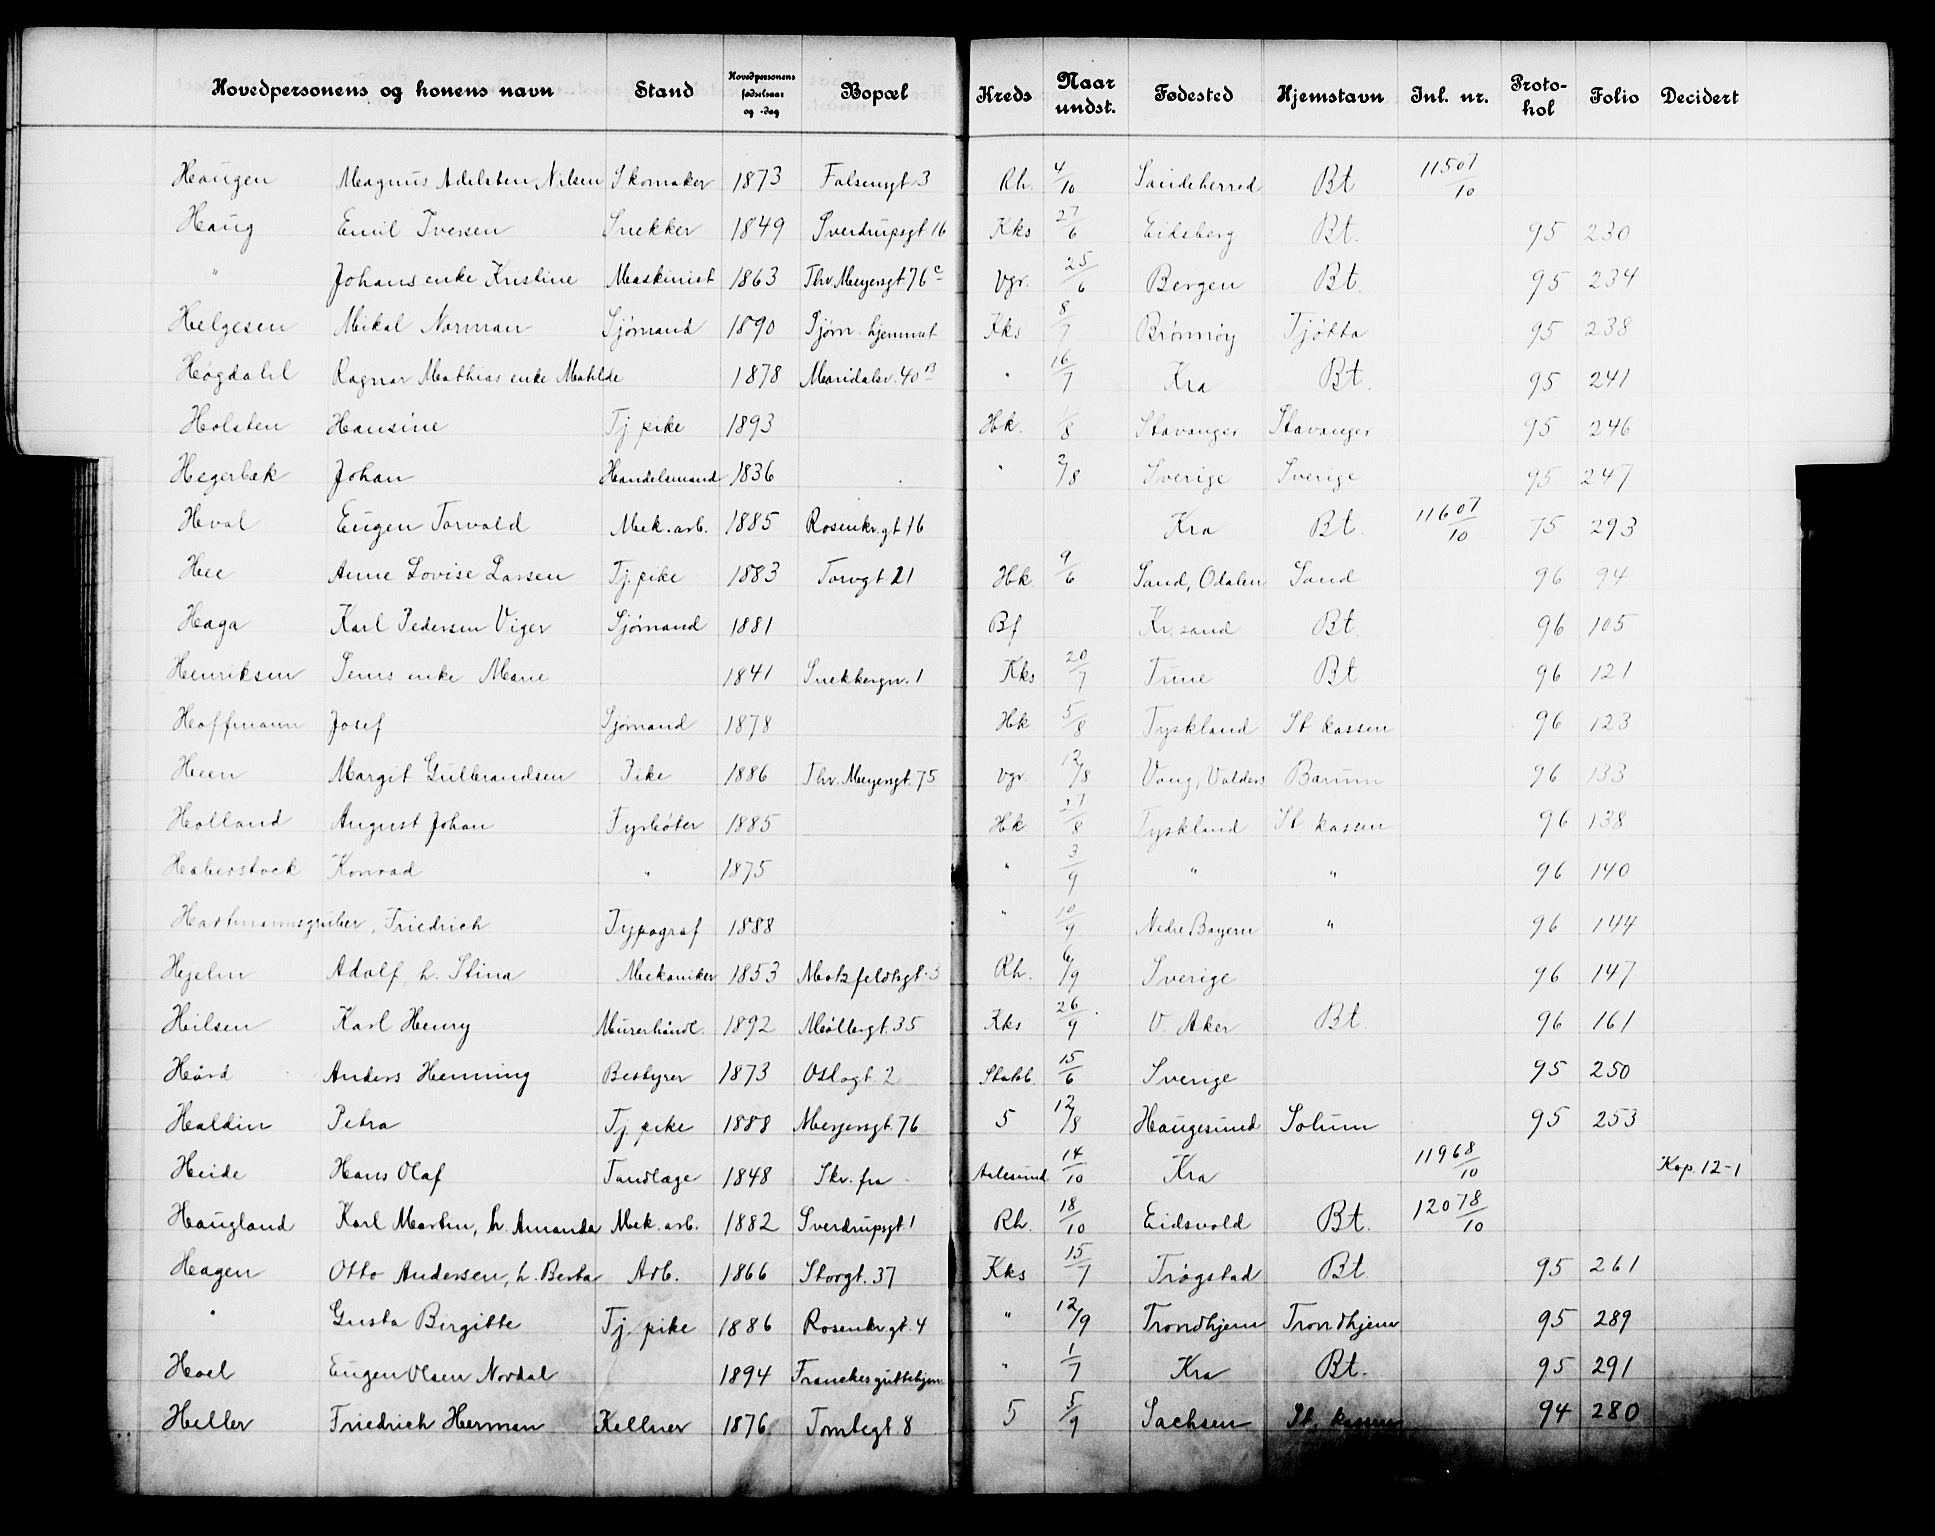 Hovedpersonens og konens navn Stand Hovedpersonens fødselsaar og -dag Bopæl Kreds Naar undst. Fødested Hjemstavn Inl. nr. Proto-hol Folio Decidert
Haugen Magnus Adelsten Nilsen Skomaker 1873 Falsensgt 3 Rh. 4/10 Sandeherred Bt 1150 7/10
Haug Emil Iversen Snekker 1849 Sverdrupsgt 16 Kks 27/6 Eidsberg Bt. 95 230
" Johans enke Kristine Maskinist 1863 Thv. Meyersgt 76 c Vgr. 25/6 Bergen Bt. 95 234
Helgesen Mikal Norman Sjømand 1890 Sjøm. hjemmet Kks 8/7 Brønnøy Tjøtta 95 238
Høgdahl Ragnar Mathias enke Matilde 1878 Maridalsv. 40 B " 16/7 Kra Bt. 95 241
Holsten Hansine Tj. pike 1893 Hk. 1/8 Stavanger Stavanger 95 246
Hegerbæk Johan Handelsmand 1836 " 2/8 Sverige Sverige 95 247
Hval Eugen Torvald Mek. arb. 1885 Rosenkr.gt 16 Kra Bt. 1160 7/10 75 293
Hee Anne Lovise Larsen Tj. pike 1883 Torvgt 21 Hk. 9/6 Sand, Odalen Sand 96 94
Haga Karl Pedersen Viger Sjømand 1881 Bf Kr.sand Bt. 96 105
Henriksen Jens enke Marie 1841 Snekkergn. 1 Kks 20/7 Tune Bt 96 121
Hoffmann Josef Sjømand 1878 Hk 5/8 Tyskland St kassen 96 123
Heen Margit Gulbrandsen Pike 1886 Thv. Meyersgt. 75 Vgr. 12/8 Vang, Valders Bærum 96 133
Holland August Johan Fyrbøter 1885 Hk 27/8 Tyskland St kassen 96 138
Haberstock Konrad " 1875 " 3/9 " " 96 140
Hartmannsgruber, Friedrich Typograf 1888 " 10/9 Nedre Bayern " 96 144
Hjelm Adolf, h. Stina Mekaniker 1853 Motzfeldtsgt. 3 Rh. 6/9 Sverige 96 147
Heilsen Karl Henry Murerhåndl. 1892 Møllergt. 35 Kks 26/9 V. Aker Bt 96 161
Hård Anders Henning Bestyrer 1873 Oslogt 2 Stabb. 15/6 Sverige 95 250
Haldin Petra Tj. pike 1888 Meyersgt. 76 5 12/8 Haugesund Solum 95 253
Heide Hans Olaf Tandlæge 1848 Skr. fra Aalesund 14/10 Kra 1196 8/10 Kop. 12-1
Haugland Karl Martin, h. Amanda Mek. arb. 1882 Sverdrupsgt 1 Rh. 18/10 Eidsvold Bt. 1207 8/10
Hagen Otto Andersen, h. Berta Arb. 1866 Storgt. 37 Kks 15/7 Trøgstad Bt. 95 261
" Gusta Birgitte Tj. pike 1886 Rosenkr.gt. 4 " 12/9 Trondhjem Trondhjem 95 289
Hoel Eugen Olsen Nordal 1894 Franckes guttehjem. " 1/7 Kra Bt. 95 291
Heller Friedrich Herman Kellner 1876 Tomtegt 8 5 5/9 Sachsen St. kassen 94 280